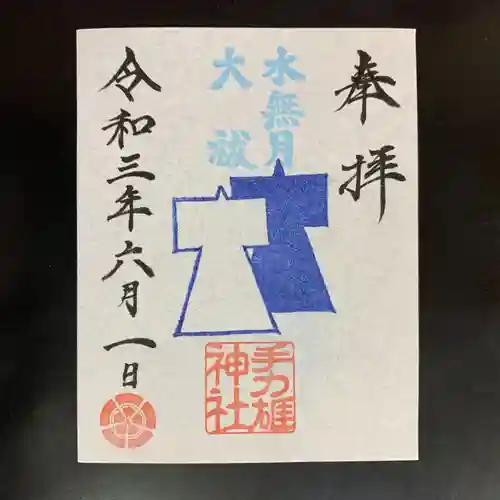 奉拝
水無月
大祓
手力雄
神社
令和三年六月一日